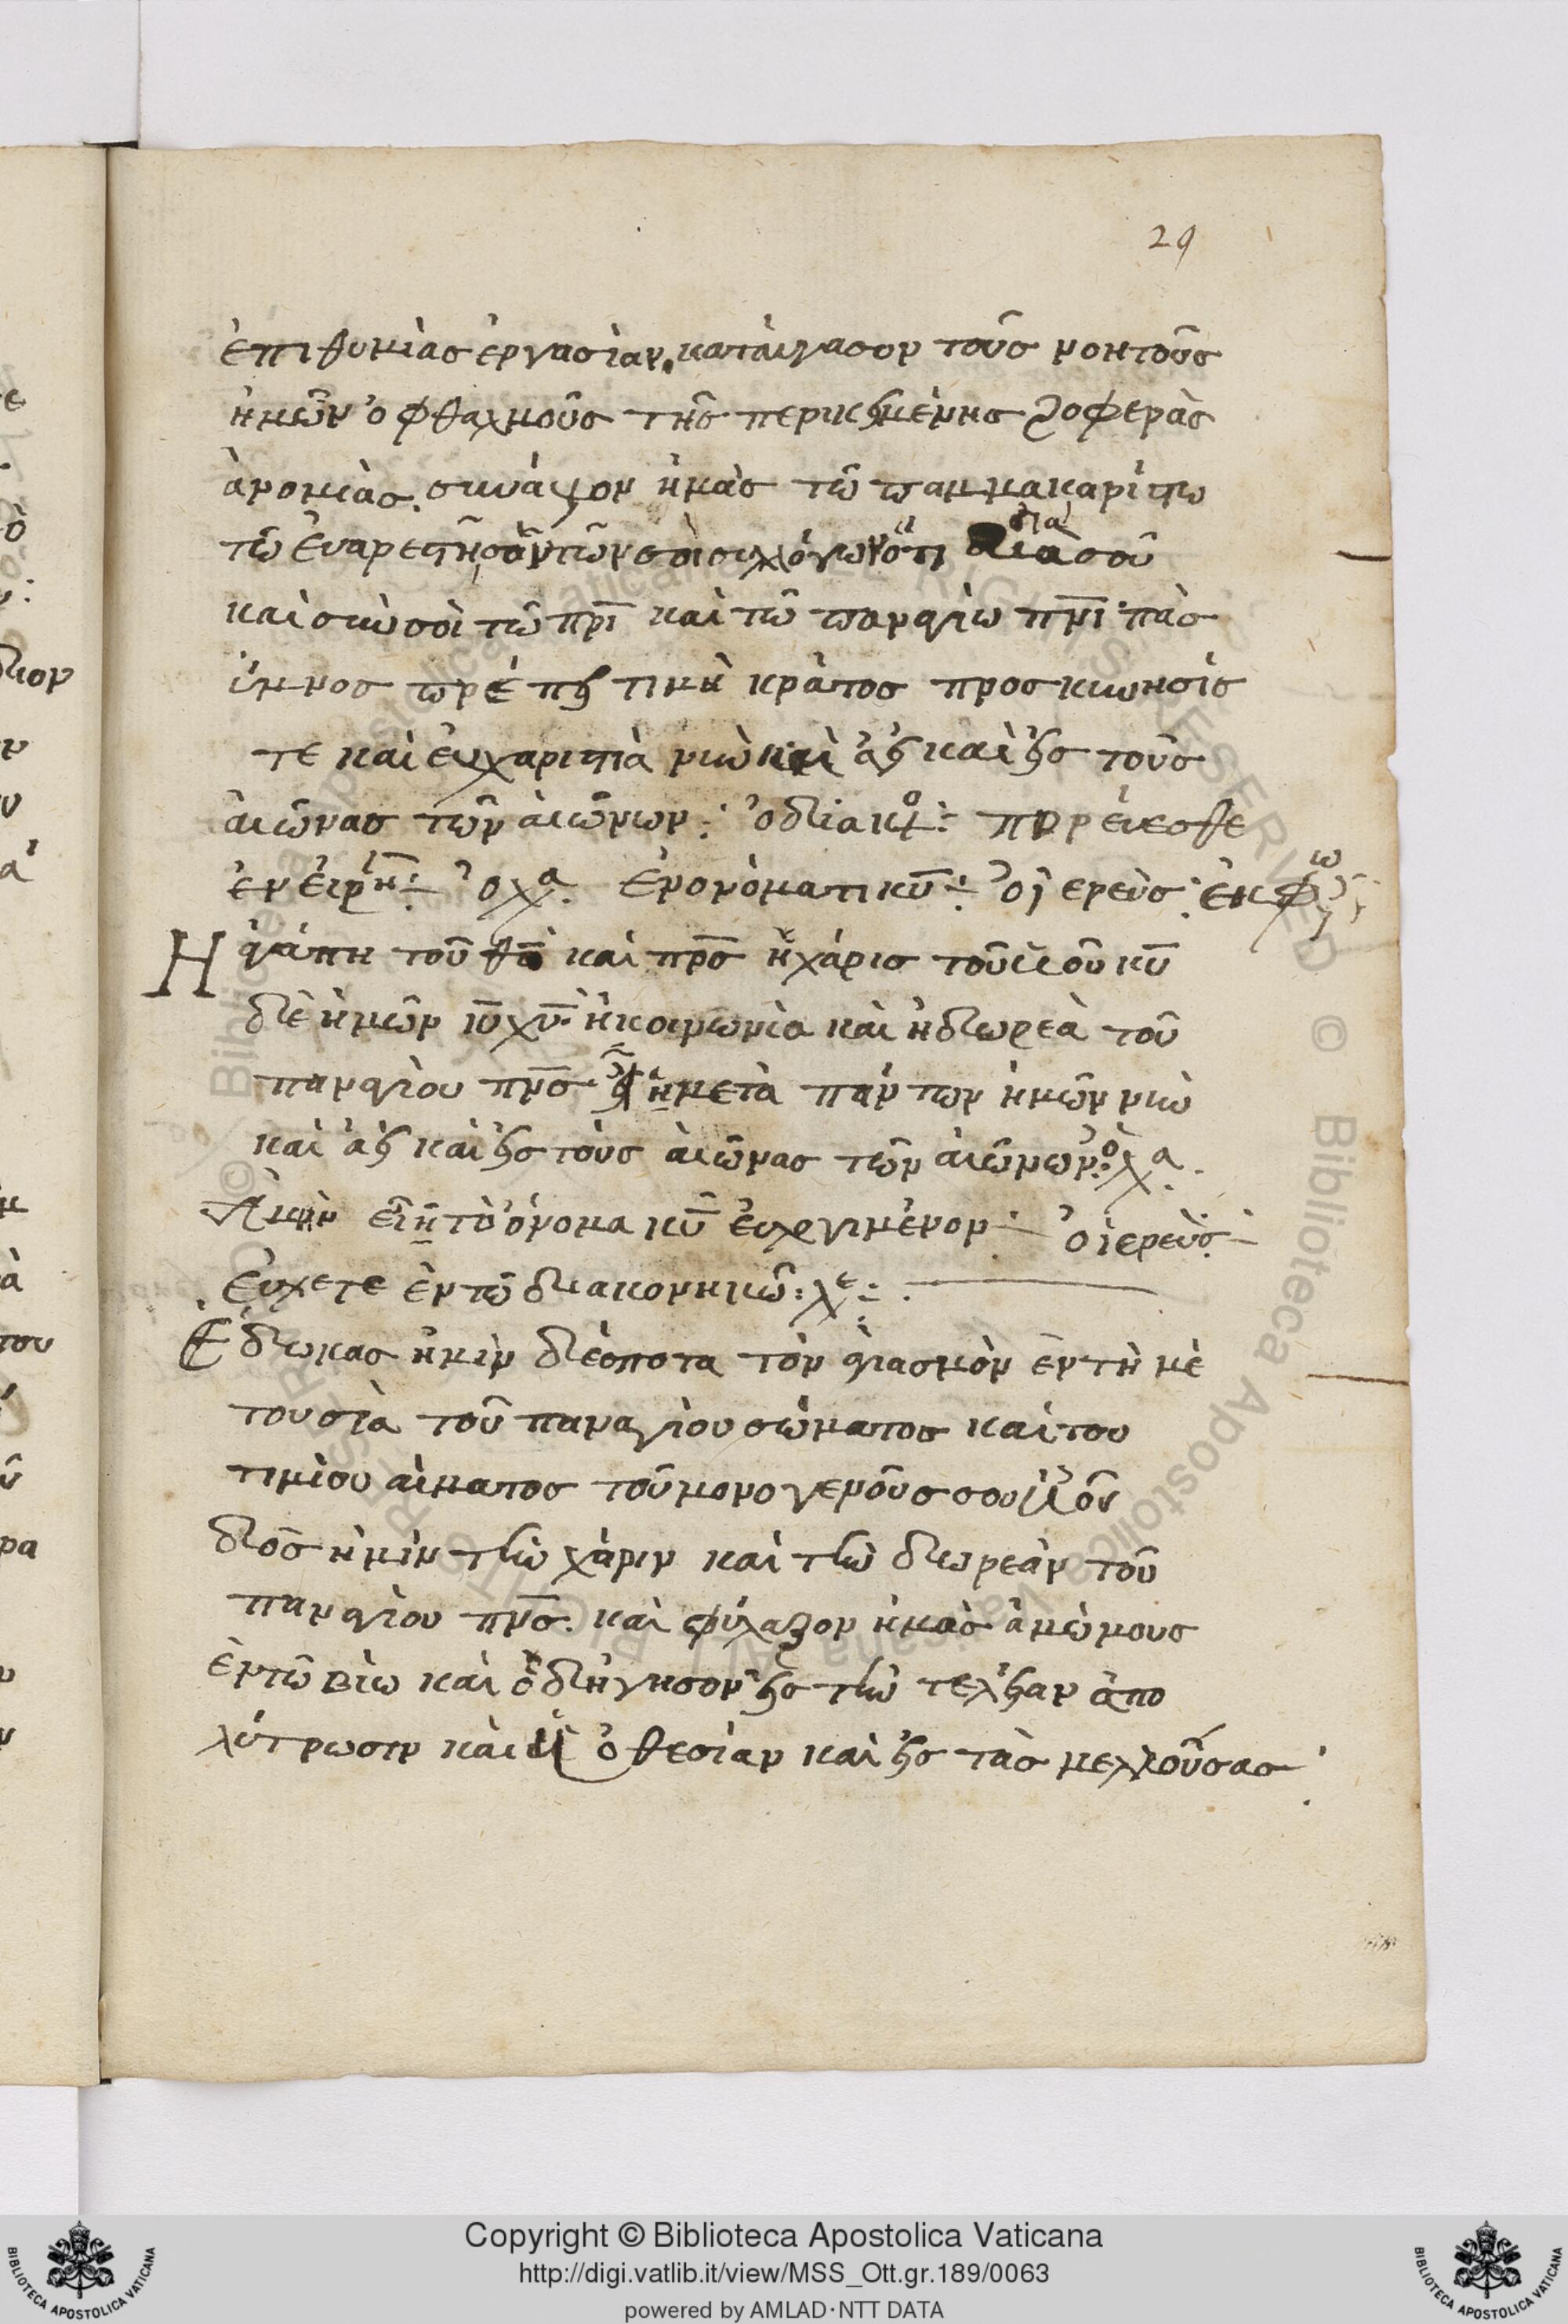 29
ἐπιθυμίας ἐργασίαν. καταύγασον τοὺς νοητοὺς
ἡμῶν ὀφθαλμοὺς τῆς περικειμένης ζοφερὰς
ἀνομίας. συνάψον ἡμὰς τῶ παμμακαρίστω
τῶ ἐυαρεστησάντων σοι συλλόγων ὅτι διὰ σοῦ
καὶ σὺν σοὶ τῶ πρι καὶ τῶ παναγίω πνι πὰς
ὕμνος πρέπει τιμὴ κράτος προσκυνησὶς
τε καὶ ἐυχαριστία νυν και ἀεὶ καὶ εἰς τοὺς
ἀιῶνας τῶν ἀιῶνων: ὁ διακο: πορέυεσθε
ἐν ἐιρην: ὁ λα. ἐν ονόματι κυ: ὁ ἱερεὺς: ἐκφω
Η ἀγάπη τοῦ θυ καὶ πρσ ἡ χάρισ τοῦ ὑιοῦ κυ
δὲ ἡμῶν ιυ χυ. ἡ κοινωνία καὶ ἡ δωρεὰ τοῦ
παναγίου πνσ εἴη μετὰ πάντων ἡμῶν νυν
καὶ ἀεὶ καὶ εἰς τοὺς ἀιῶνας τῶν ἀιῶνων: ὁ λα.
Ἀμὴν εἴη τὸ ὄνομα κυ ἐυλογιμένον: ὁ ἱερεὺς:
Εὐχετε ἐν τῶ διακονηκῶ: λε:
Ἐδωκας ἡμὶν δέσποτα τὸν ἁγιασμὸν ἐν τὴ μὲ
τουσία τοῦ παναγίου σώματος καὶ του
τιμίου αἵματος τοῦ μονογενοῦς σου ὑιοῦ
δος ἡμὶν τὴν χάριν καὶ τὴν δωρεὰν τοῦ
παναγίου πνσ. καὶ φύλαξον ἡμὰς ἀμώμους
ἐν τῶ βίω καὶ ὁδήγησον εἰς τὴν τελείαν ἀπο
λύτρωσιν καὶ ὑιοθεσίαν καὶ εἰς τὰς μελλούσας
Copyright © Biblioteca Apostolica Vaticana
http://digi.vatlib.it/view/MSS_Ott.gr.189/0063
powered by AMLAD·NTT DATA